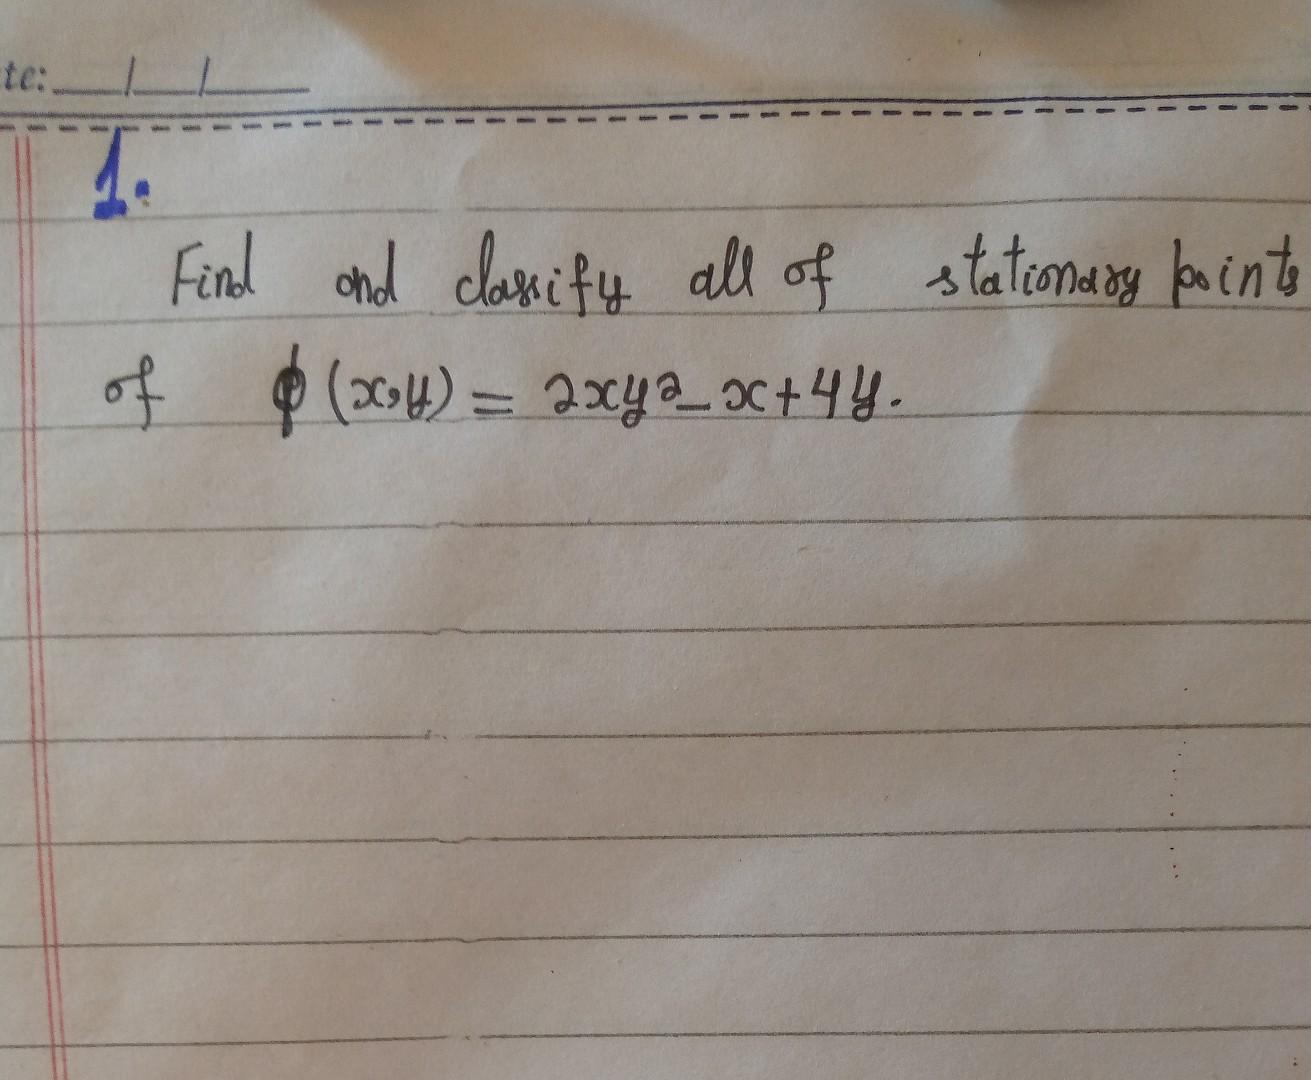 te: / /
1.
Find and classify all of stationary points
of ϕ(x,y) = 2xy2_x+4y.